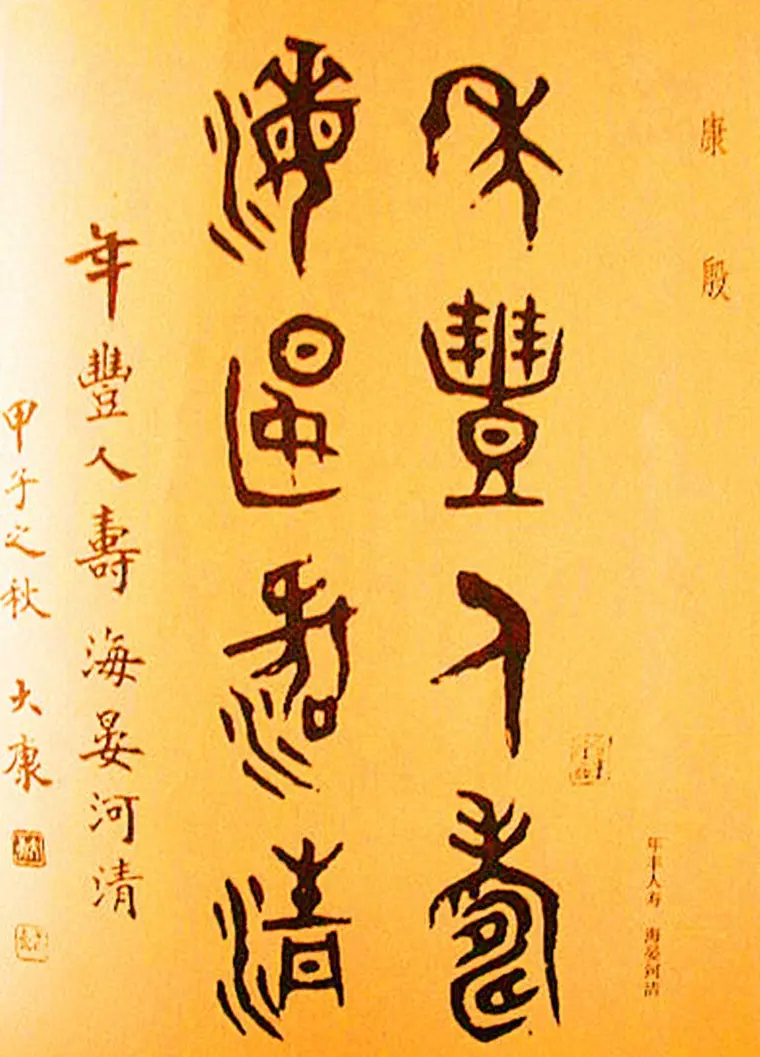 康殷
年豐人壽
海晏河清
年丰人寿 海晏河清
年豐人壽海晏河清
甲子之秋 大康